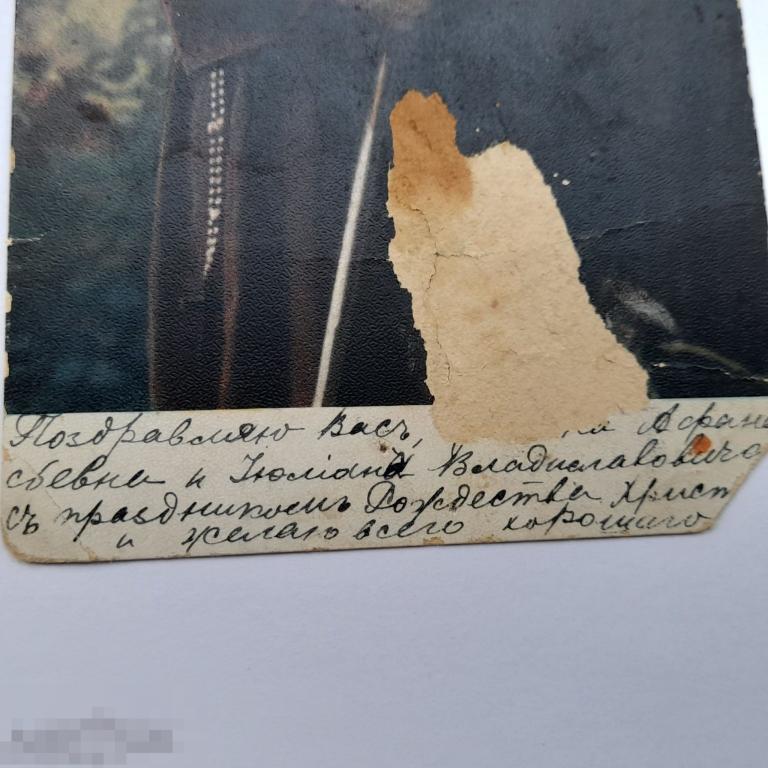 Поздравляю Васъ, на Афана
сьевна и Юліанъ Владиславовичъ
съ праздникомъ Рождества Христ
и желаю всего хорошаго